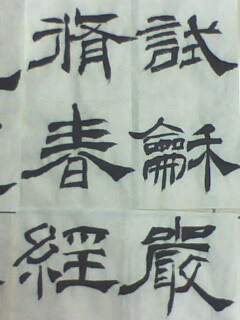 試龢嚴
脩春經